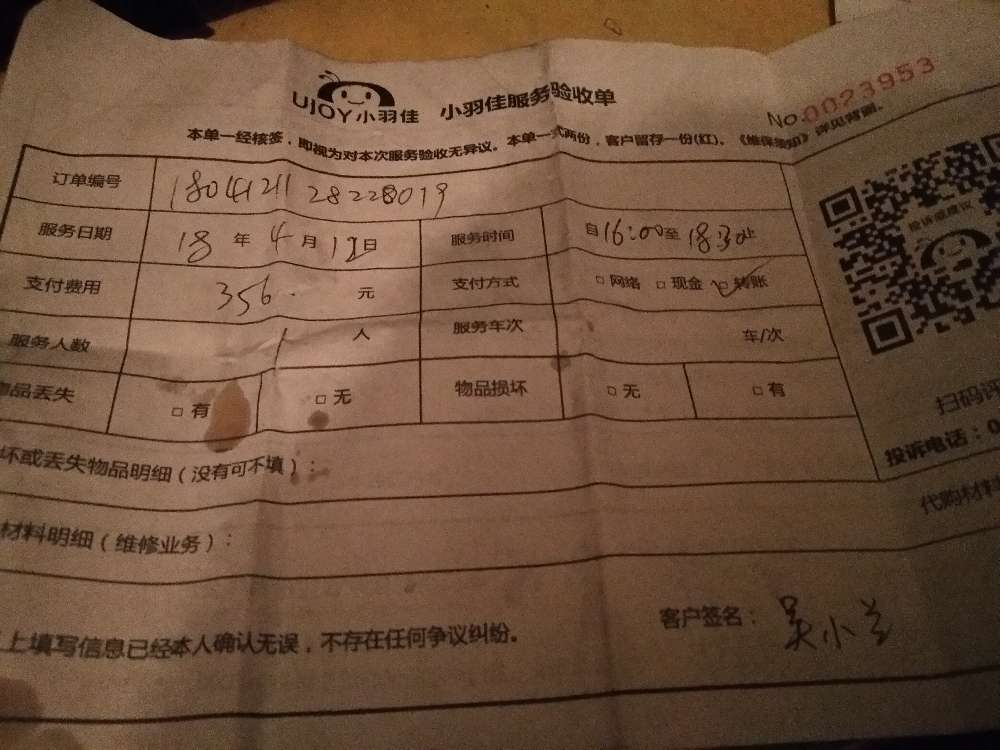 UJOY小羽佳 小羽佳服务验收单 No.0023953
本单一经核签，即视为对本次服务验收无异议。本单一式两份，客户留存一份(红)。《维保须知》详见背面。
订单编号
服务日期 18 年 4 月 12 日 服务时间 自16:00至18:30止
支付费用 356. 元 支付方式 □ 网络 □ 现金 ☑ 转账
服务人数 1 人 服务车次 车/次
物品丢失 □ 有 □ 无 物品损坏 □ 无 □ 有
投诉或建议
扫码评
投诉电话：0
坏或丢失物品明细（没有可不填）：
材料明细（维修业务）： 代购材料
上填写信息已经本人确认无误，不存在任何争议纠纷。 客户签名： 吴小兰